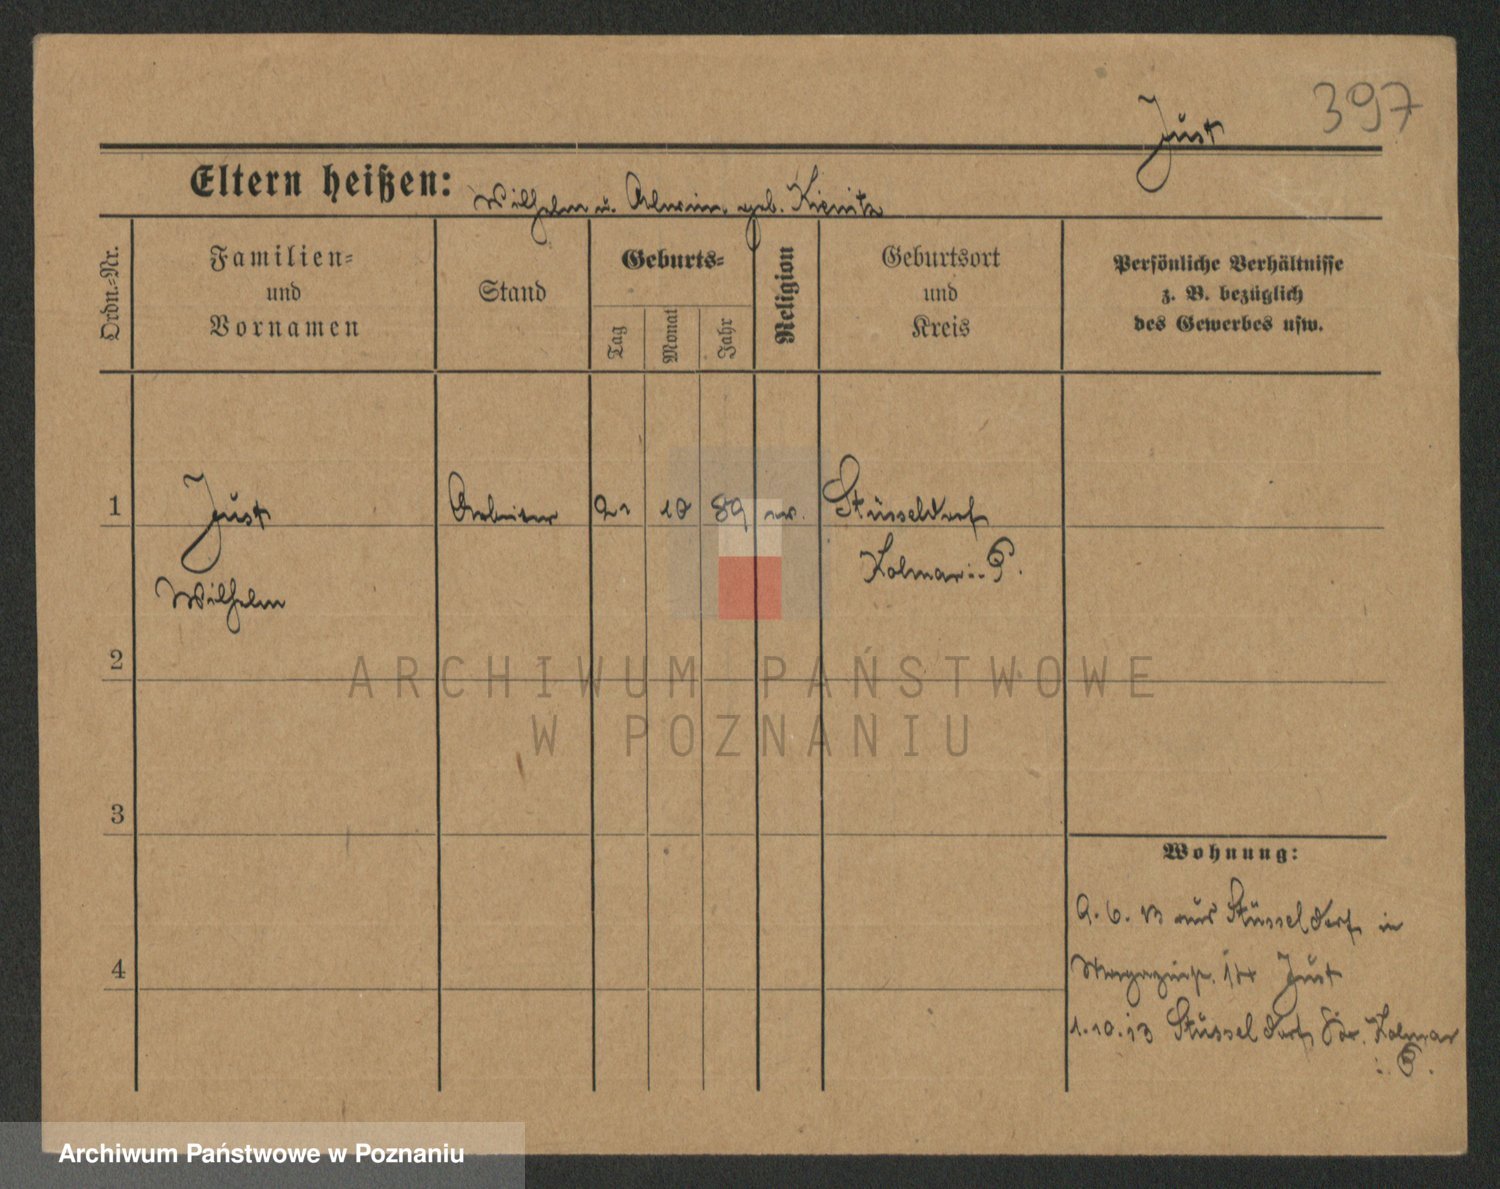 397
Just
Eltern heißen: Wilhelm u. geb. Kienitz
Ordn.-Nr.
Familien-
und
Vornamen
Stand
Geburts-
Tag
Monat
Jahr
Religion
Geburtsort
und
Kreis
Persönliche Verhältnisse
z. B. bezüglich
des Gewerbes usw.
1
Just
Arbeiter
10
89
ev.
Stüsseldorf
Kolmar i. P.
Wilhelm
2
ARCHIWUM PAŃSTWOWE
W POZNANIU
3
Wohnung:
9. 6. 13 aus Stüsseldorf in
Just
4
1.10.13 Stüsseldorf Kolmar
i. P.
Archiwum Państwowe w Poznaniu